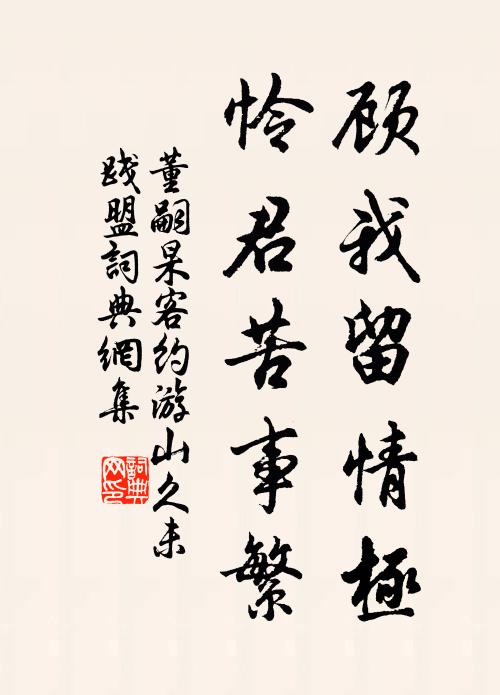 顾我留情極
怜君苦事繁
董嗣杲客约游山久未
践盟詞典網集
詞典
网印